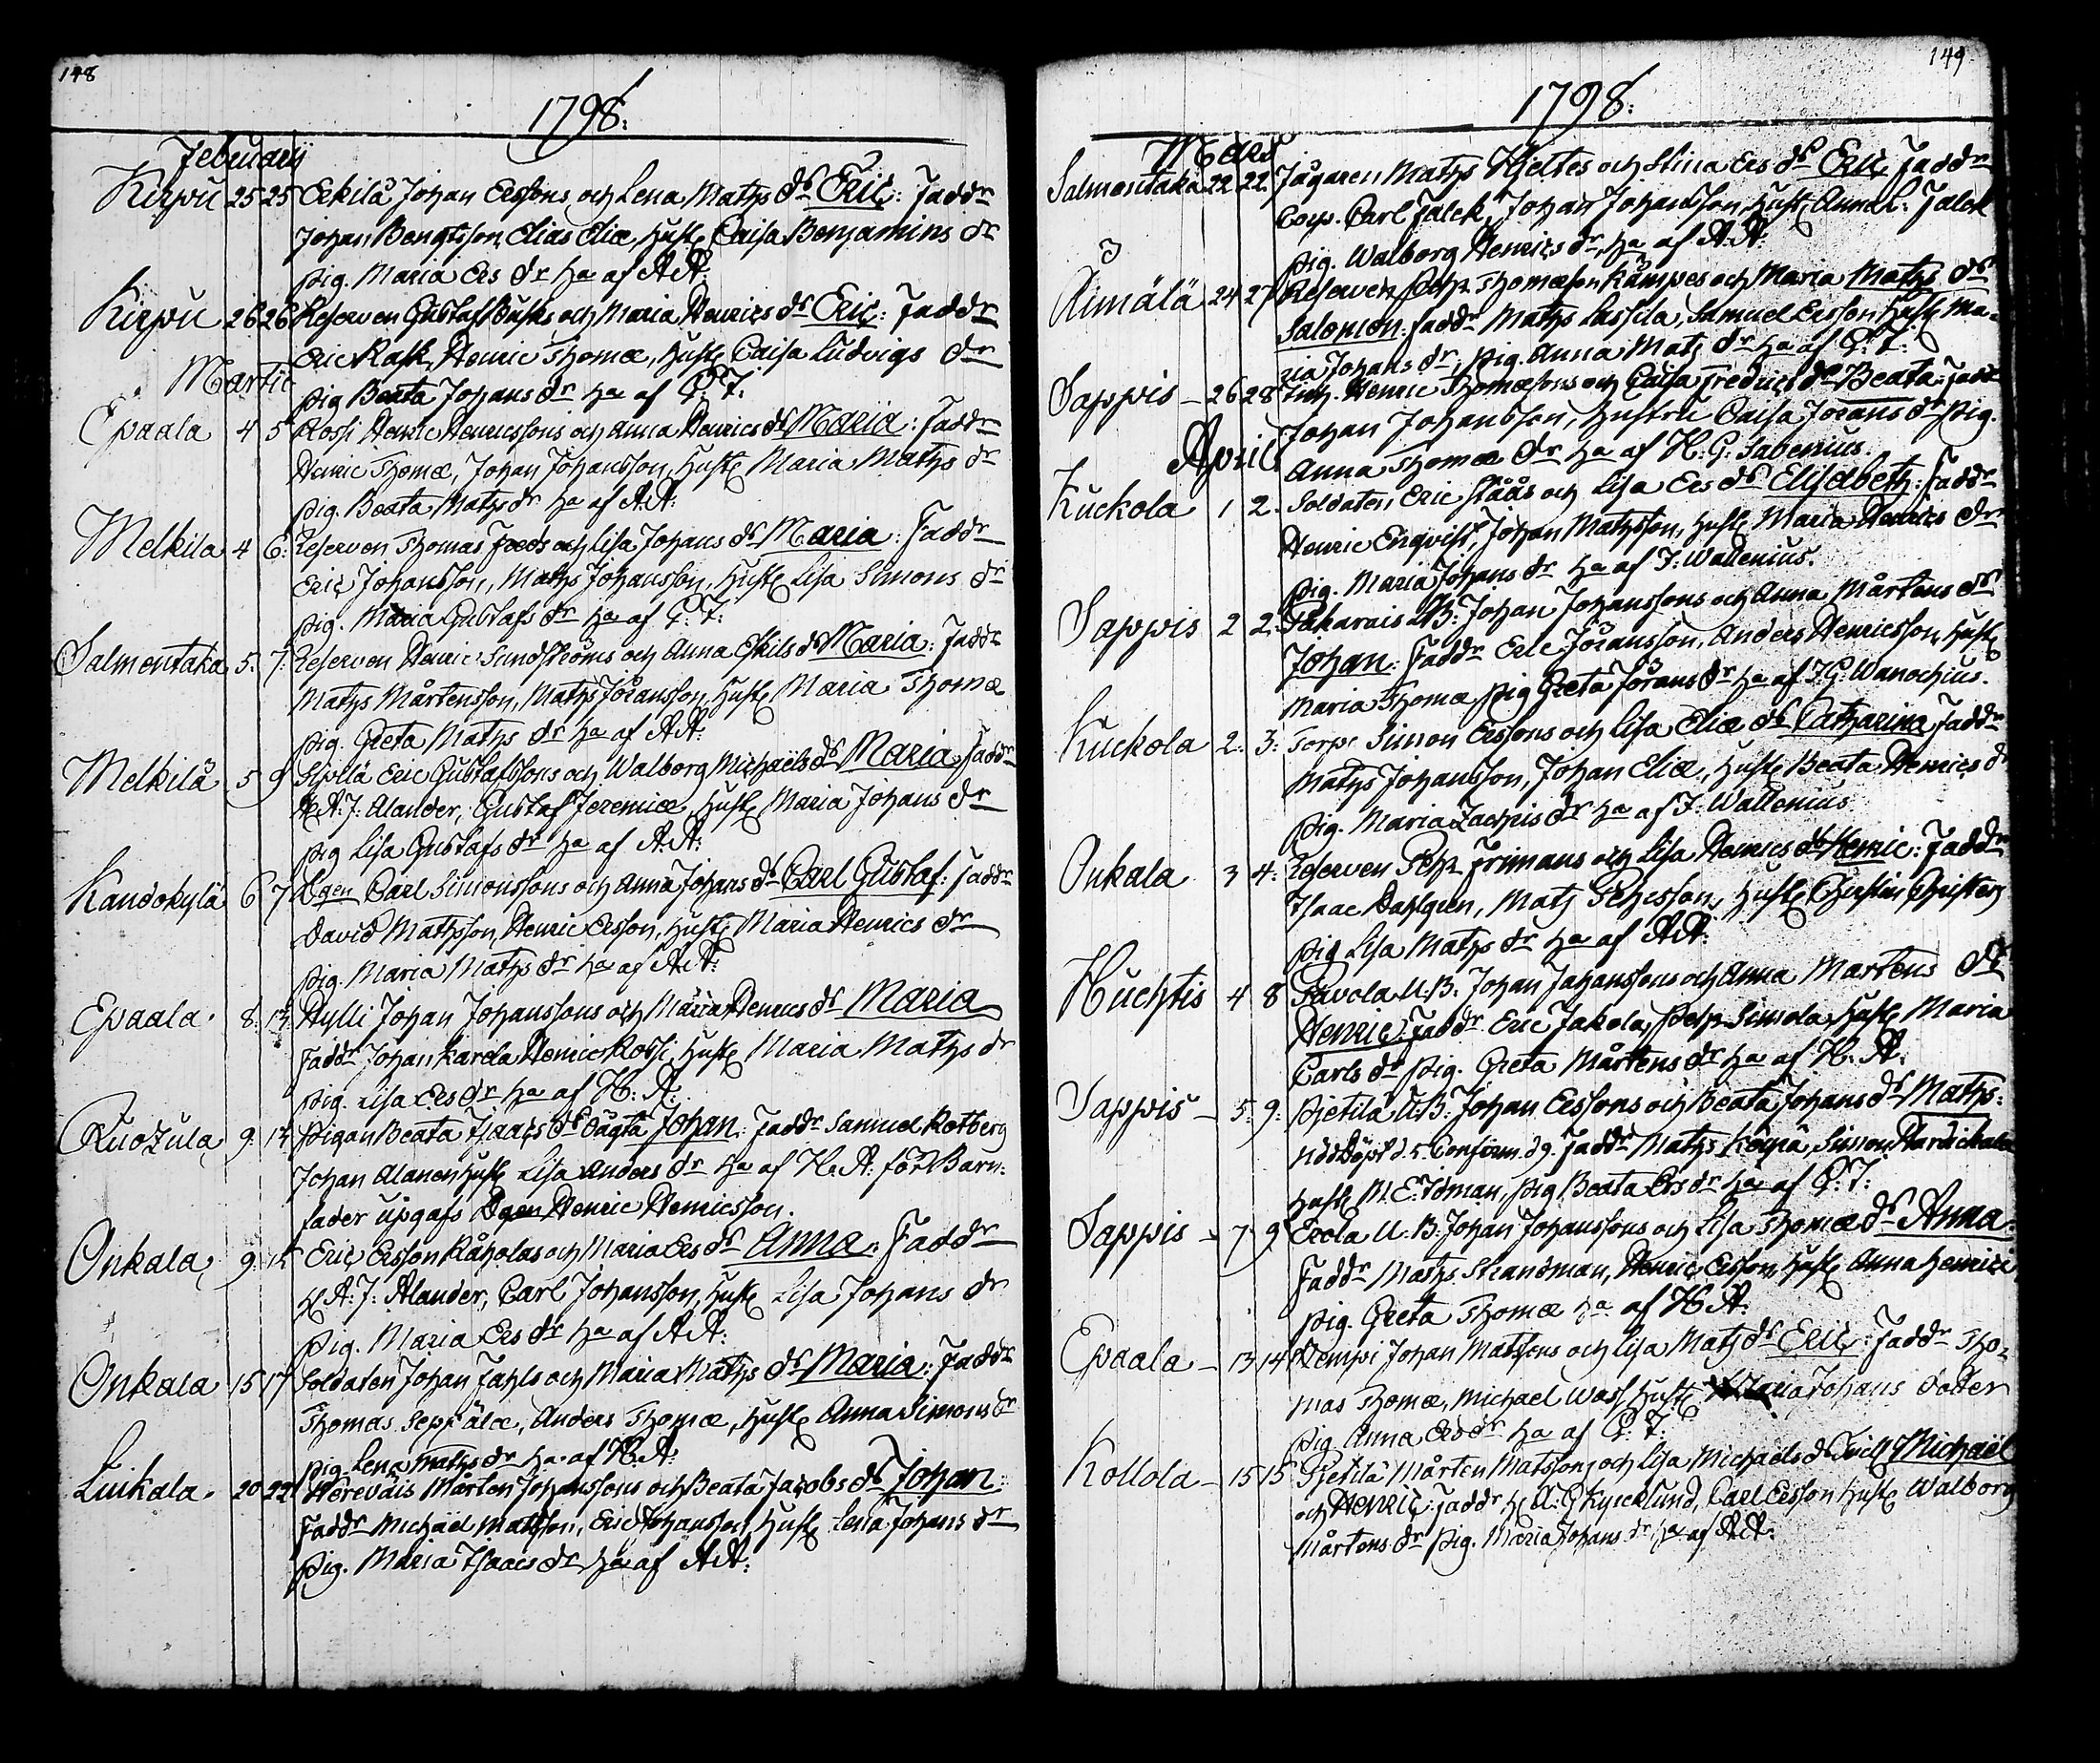 148
1798.
Februarii
Kirpu 25 25 Eckilä Johan Erssons och Lena Maths dr Eric: Faddr
Johan Bengtsson, Elias Eliæ, Hust. Caisa Benjamins dr
pig. Maria Ers dr ha af A.A:
Kirpu 26 26 Reserven Gustaf Busks och Maria Henrics dr Eric: Faddr
Eric Rask, Henric Thomæ, Hust. Caisa Ludvigs dr
pig Beata Johans dr ha af P: T:
Martii
Epaala 4 5 Rossi Henric Henricssons och Anna Henrics dr Maria: Faddr
Henric Thomæ, Johan Johansson, Hust. Maria Maths dr
pig. Beata Maths dr ha af A.A:
Melkila 4 6: Reserven Thomas och Lisa Johans dr Maria: Faddr
Eric Johansson, Maths Johansson, Hust. Lisa Simons dr
pig. Maria Gustafs dr ha af P: T:
Salmentaka 5. 7: Reserven Henric Sundströms och Anna Eskils dr Maria: Faddr
Maths Mårtensson, Maths Jöransson, Hust. Maria Thomæ
pig. Greta Maths dr ha af A.A:
Melkilä 5 9 Sipilä Eric Gustafssons och Walborg Michaëls dr Maria: Faddr
H. A: J: Alander, Gustaf Jeremiæ, Hust. Maria Johans dr
pig Lisa Gustafs dr ha af A.A:
Kandokylä 6 7 Dgen Carl Simonssons och Anna Johans dr Carl Gustaf: Faddr
David Mathsson, Henric Ersson, Hust. Maria Henrics dr
pig. Maria Maths dr ha af A.A:
Epaala. 8. 13 Hylli Johan Johanssons och Maria Henrics dr Maria
Faddr Johan Karela, Henric Rossi, Hust. Maria Maths dr
pig. Lisa Ers dr ha af H: A:
9. 13 Pigan Beata Isaacs dr oägta Johan: Faddr Samuel Rotberg
Johan Alanen Hust. Lisa Anders dr ha af H. A: för Barn:
fader upgafs Dgen Henric Henricsson.
Onkala. 9. 15 Eric Ersson Råholas och Maria Ers dr Anna: Faddr
H. A: J: Alander, Carl Johansson, Hust. Lisa Johans dr
pig. Maria Ers dr ha af A.A:
Onkala 15 17 Soldaten Johan Fahls och Maria Maths dr Maria: Faddr
Thomas Seppälä, Anders Thomæ, Hust. Anna Simons dr
pig. Lena Maths dr ha. af H. A:
Luikala. 20 22 Herevais Mårten Johanssons och Beata Jacobs dr Johan:
Faddr Michaël Matsson, Eric Johansson, Hust. Lena Johans dr
pig. Maria Isaacs dr ha af A.A:
149
1798.
Mars
Salmentaka 22 22 Jägaren Maths Hjeltes och Stina Ers dr Eric Faddr
Corp. Carl Falck, Johan Johansson, Hust. Anna L: Falck
pig. Walborg Henrics dr ha af A.A:
3
Rimälä 24 27 Reserven Pehr Thomæson Kämpes och Maria Maths dr
Salomon: Faddr Maths Lassila, Samuel Ersson Hust. Ma-
ria Johans dr, pig. Anna Mats dr ha af P: T:
Sappis – 26 28 Inh. Henric Thomæsons och Caisa Fredrics dr Beata: Fadd
Johan Johansson, Hustru Caisa Jörans dr pig.
Anna Thomæ dr ha af H. G. Sabenius.
April
Kuckola 1 2. Soldaten Eric Ståås och Lisa Ers dr Elisabeth: Faddr
Henric Enqvist, Johan Mathsson, Hust. Maria Henrics dr
pig. Maria Johans dr ha af J: Wallenius.
Sappis 2 2: Pakarais B: Johan Johanssons och Anna Mårtens dr
Johan: Faddr Eric Jöransson, Anders Henricsson, Hust.
Maria Thomæ pig Greta Jörans dr ha af J.G: Wanochius.
Kuckola 2. 3: Torp: Simon Erssons och Lisa Eliæ dr Catharina Faddr
Maths Johansson, Johan Eliæ, Hust. Beata Henrics dr
pig. Maria Zachris dr ha af J: Wallenius
Onkala 3 4: Reserven Pehr Frimans och Lisa Henrics dr Henric: Faddr
Isaac Dahlgren, Mats Pehrsson, Hust. Christin Christers
pig Lisa Maths dr ha af A.A:
Huchtis 4 8 Pavola U. B: Johan Johanssons och Anna Mårtens dr
Henric: Faddr Eric Jakola, Pehr Simola, Hust. Maria
Carls dr pig. Greta Mårtens dr ha af H: A:
Sappis – 5. 9: Pietilä U.B: Johan Erssons och Beata Johans dr Maths:
Nöddöpt d. 5. Confirm. d 9. Faddr Maths Köyrä, Simon Hardickala
Hust. M. E: Idman, pig Beata Ers dr ha af P: T:
Sappis – 7 9 Erola U. B: Johan Johanssons och Lisa Thomæ dr Anna:
Faddr Maths Strandman, Henric Ersson, Hust. Anna Henrici
pig. Greta Thomæ ha af H.A:
Epaala – 13 14 Hempi Johan Matssons och Lisa Mats dr Eric: Faddr Tho:
mas Thomæ, Michael Wass Hust. Maria Johans dotter
pig. Anna Ers dr ha af P: T:
Kollola – 15 15 Pietilä Mårten Matssons och Lisa Michaels dr Tvill Michaël
och Henric: Faddr H. A: G Kyrcklund, Carl Ersson Hust. Walborg
Mårtens dr pig. Maria Johans dr ha af A.A: